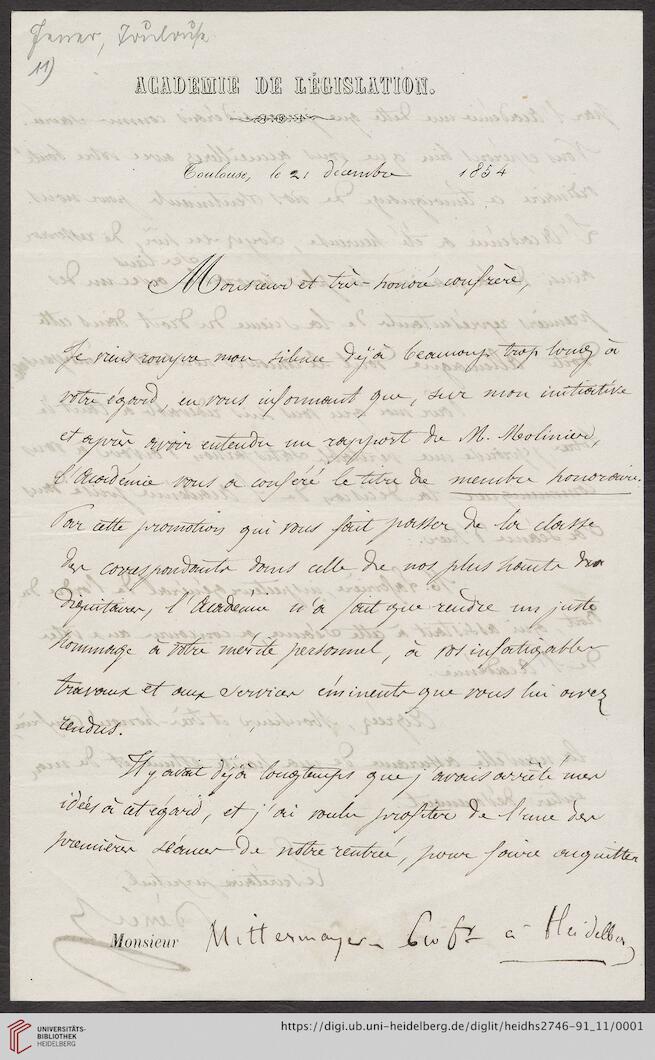 Toulouse
11)
ACADEMIE DE LÉGISLATION.
Toulouse, le 21 décembre 1854
Monsieur et très-honoré confrère,
Je viens rompre mon silence déjà beaucoup trop long à
votre égard, en vous informant que, sur mon initiative
et après avoir entendu un rapport de M. Molinier,
l'Académie vous a conféré le titre de membre honoraire.
Par cette promotion qui vous fait passer de la classe
des correspondants dans celle de nos plus hauts
dignitaires, l'Académie n'a fait que rendre un juste
hommage à votre mérite personnel, à vos infatigables
travaux et aux services éminents que vous lui avez
rendus.
Il y avait déjà longtemps que j'avais arrêté mes
idées à cet égard, et j'ai voulu profiter de l'une des
premières séances de notre rentrée, pour faire acquitter
Monsieur Mittermayer Profr à Heidelberg
UNIVERSITÄTS-
BIBLIOTHEK
HEIDELBERG
https://digi.ub.uni-heidelberg.de/diglit/heidhs2746-91_11/0001